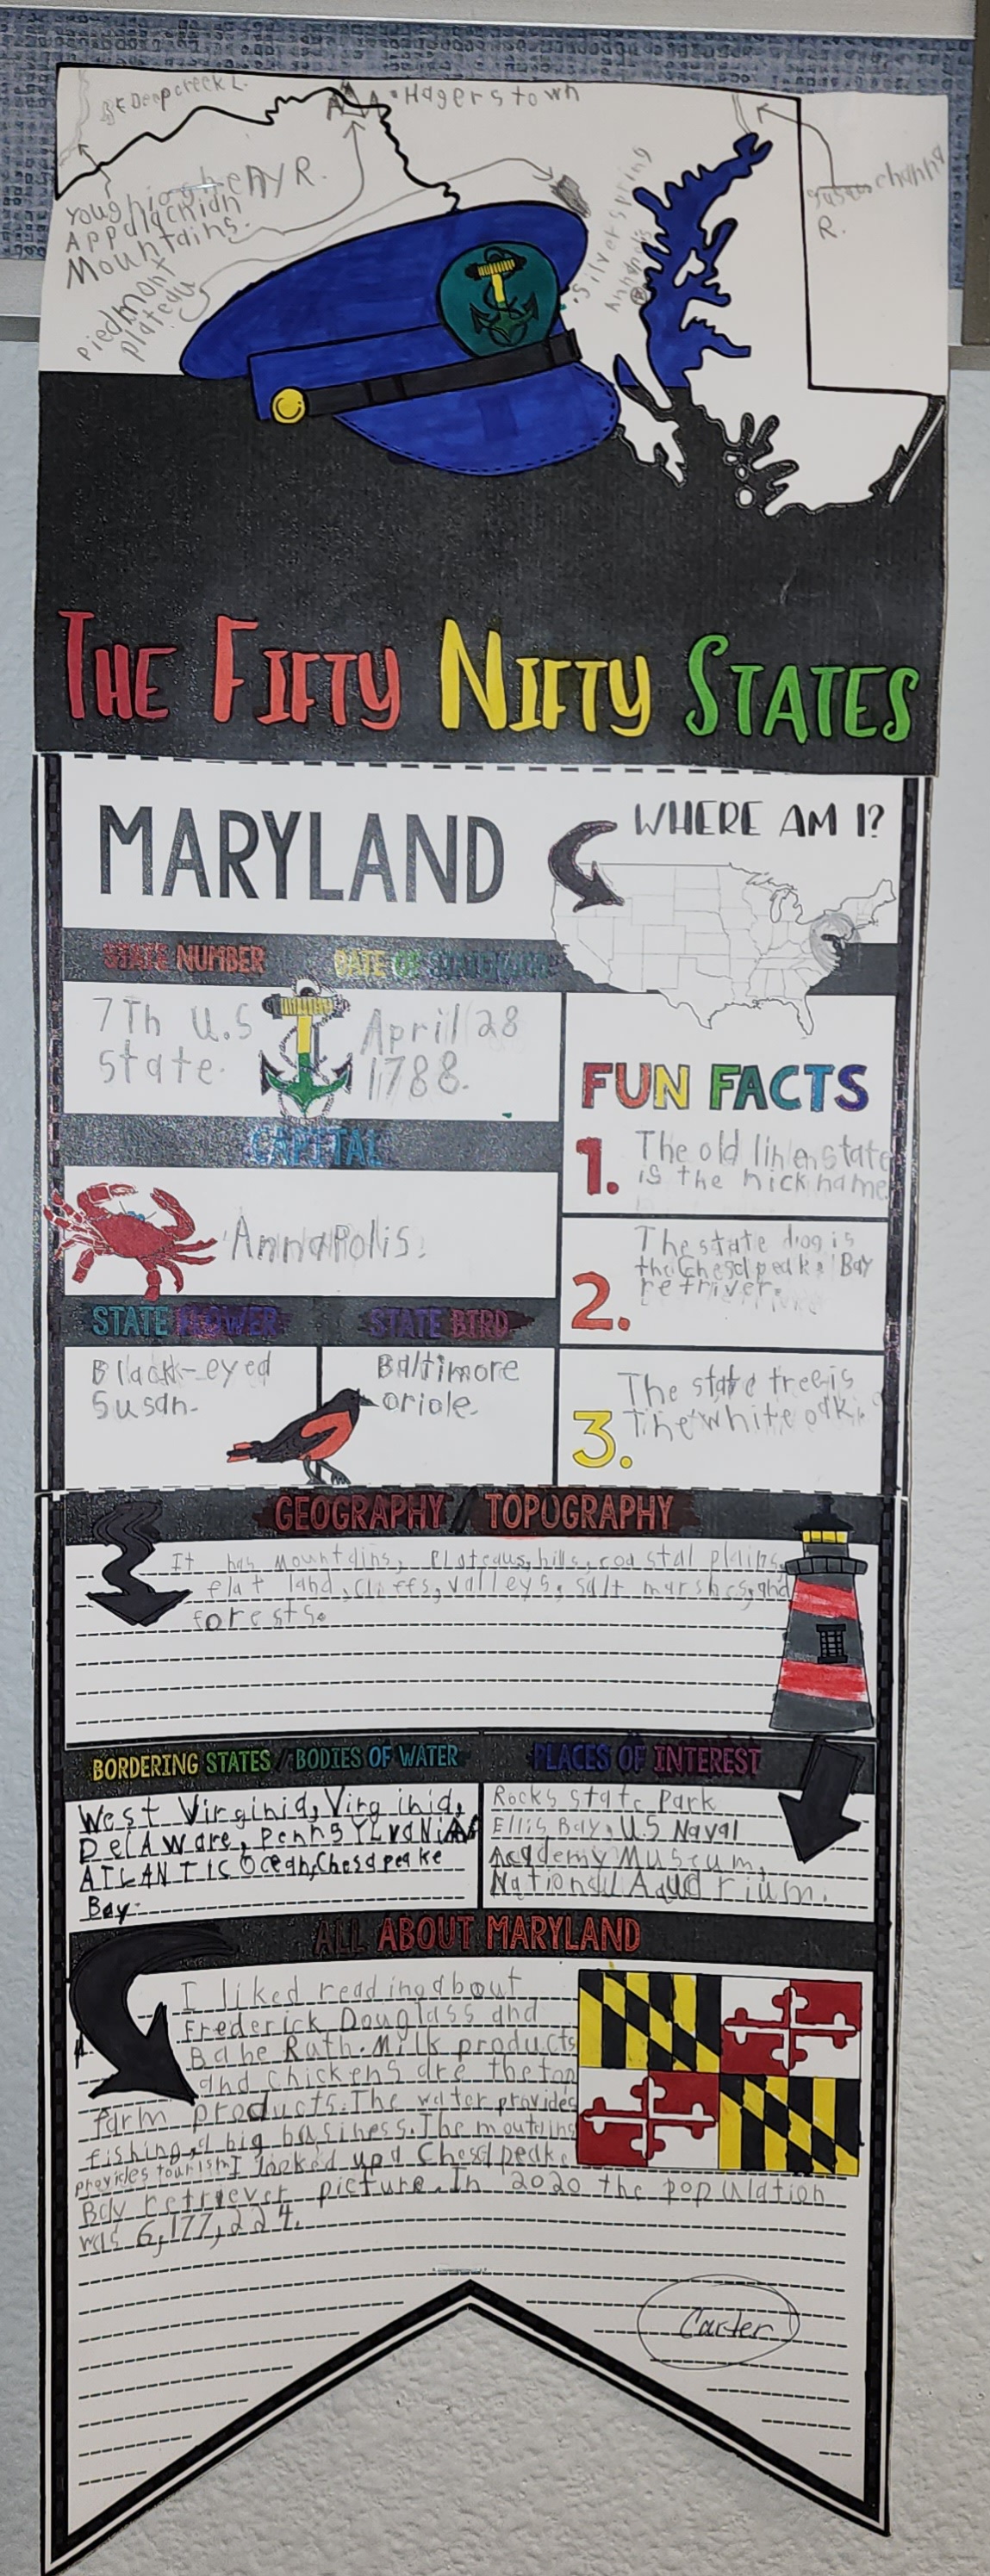 Deepcreek L.
Hagerstown
Youghiogheny R.
Appalachian
Mountains.
piedmont
plateau
Silver spring
Annapolis
Susquehanna
R.
THE FIFTY NIFTY STATES
MARYLAND
WHERE AM I?
STATE NUMBER
DATE OF STATEHOOD
7Th U.S
state.
April 28
1788.
FUN FACTS
CAPITAL
AnnaPolis.
1. The old linen state
is the nickname
2. The state dog is
the Chesapeake Bay
retriver.
STATE FLOWER
STATE BIRD
Black-eyed
Susan.
Baltimore
oriole.
3. The state tree is
The white oak.
GEOGRAPHY / TOPOGRAPHY
It has mountains, Plateaus, hills, coastal plains,
flat land, cliffs, valleys, salt marshes, and
forests.
BORDERING STATES / BODIES OF WATER
West Virginia, Virginia,
DelAware, pennsYLvaNiA
ATLANTIC Ocean, Chesapeake
Bay
PLACES OF INTEREST
Rocks state Park
Ellis Bay, U.S Naval
Academy Museum,
National Aquarium.
ALL ABOUT MARYLAND
I liked reading about
Frederick Douglass and
Babe Ruth. Milk products
and chickens are the top
farm products. The water provides
fishing, a big business. The moutains
provides tourism I looked up a Chesapeake
Bay retriever picture. In 2020 the population
was 6,177,224.
Carter